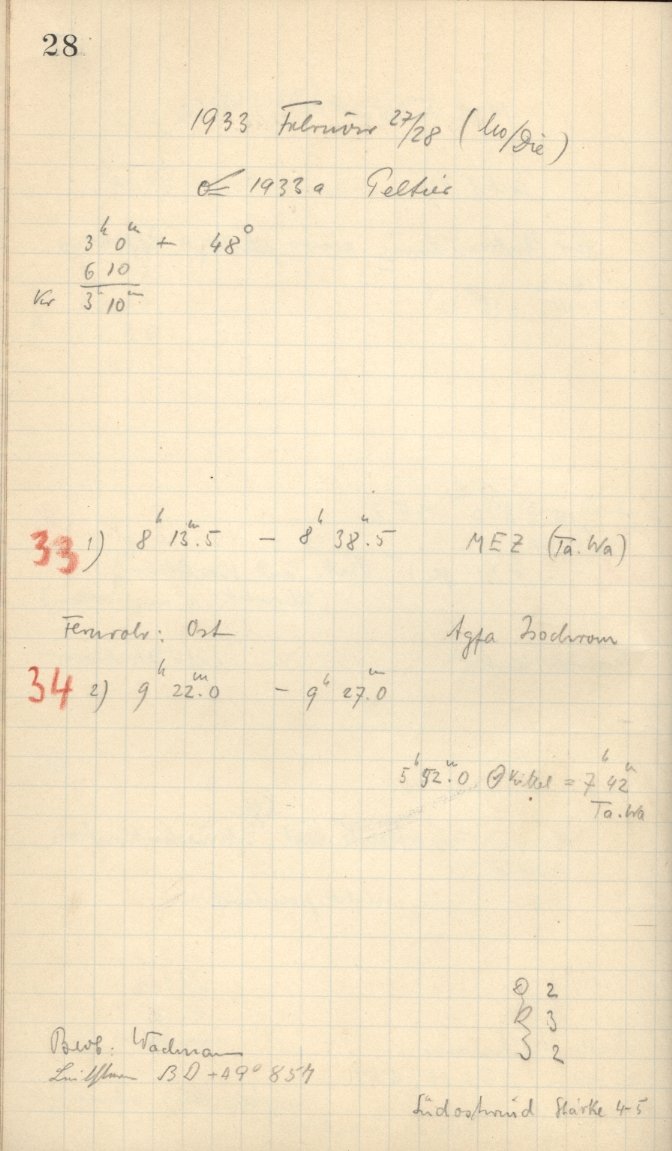 28
1933 Februar 27/28 (Mo/Die)
☄ 1933a Peltier
3ʰ 0ᵐ + 48°
6 10
3ʰ 10ᵐ
33 1) 8ʰ 13ᵐ.5 – 8ʰ 38ᵐ.5 MEZ (Ta.Wa)
Fernrohr: Ost Agfa Isochrom
34 2) 9ʰ 22ᵐ.0 – 9ʰ 27.0ᵐ
5ʰ 52ᵐ.0 = 7ʰ 42ᵐ
Ta.Wa
2
3
Beob: Wachmann 2
BD +49° 857
Südostwind Stärke 4-5